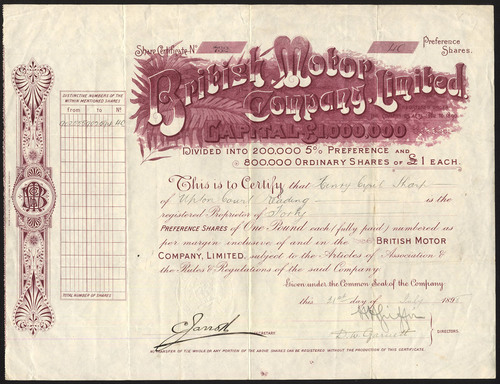 Share Certificate No 732
40 Preference Shares.
British Motor
Company, Limited.
CAPITAL £1,000,000
DIVIDED INTO 200,000 5% PREFERENCE AND
800,000 ORDINARY SHARES OF £1 EACH.
DISTINCTIVE NUMBERS OF THE
WITHIN MENTIONED SHARES
From to No
40
TOTAL NUMBER OF SHARES
This is to Certify that Henry Cyril Sharp
of Upton Court Reading is the
registered Proprietor of Forty
PREFERENCE SHARES of One Pound each (fully paid) numbered as
per margin inclusive of and in the BRITISH MOTOR
COMPANY, LIMITED. subject to the Articles of Association &
the Rules & Regulations of the said Company.
Given under the Common Seal of the Company
this day of 189
C Jarrott SECRETARY
DIRECTORS.
NO TRANSFER OF THE WHOLE OR ANY PORTION OF THE ABOVE SHARES CAN BE REGISTERED WITHOUT THE PRODUCTION OF THIS CERTIFICATE.